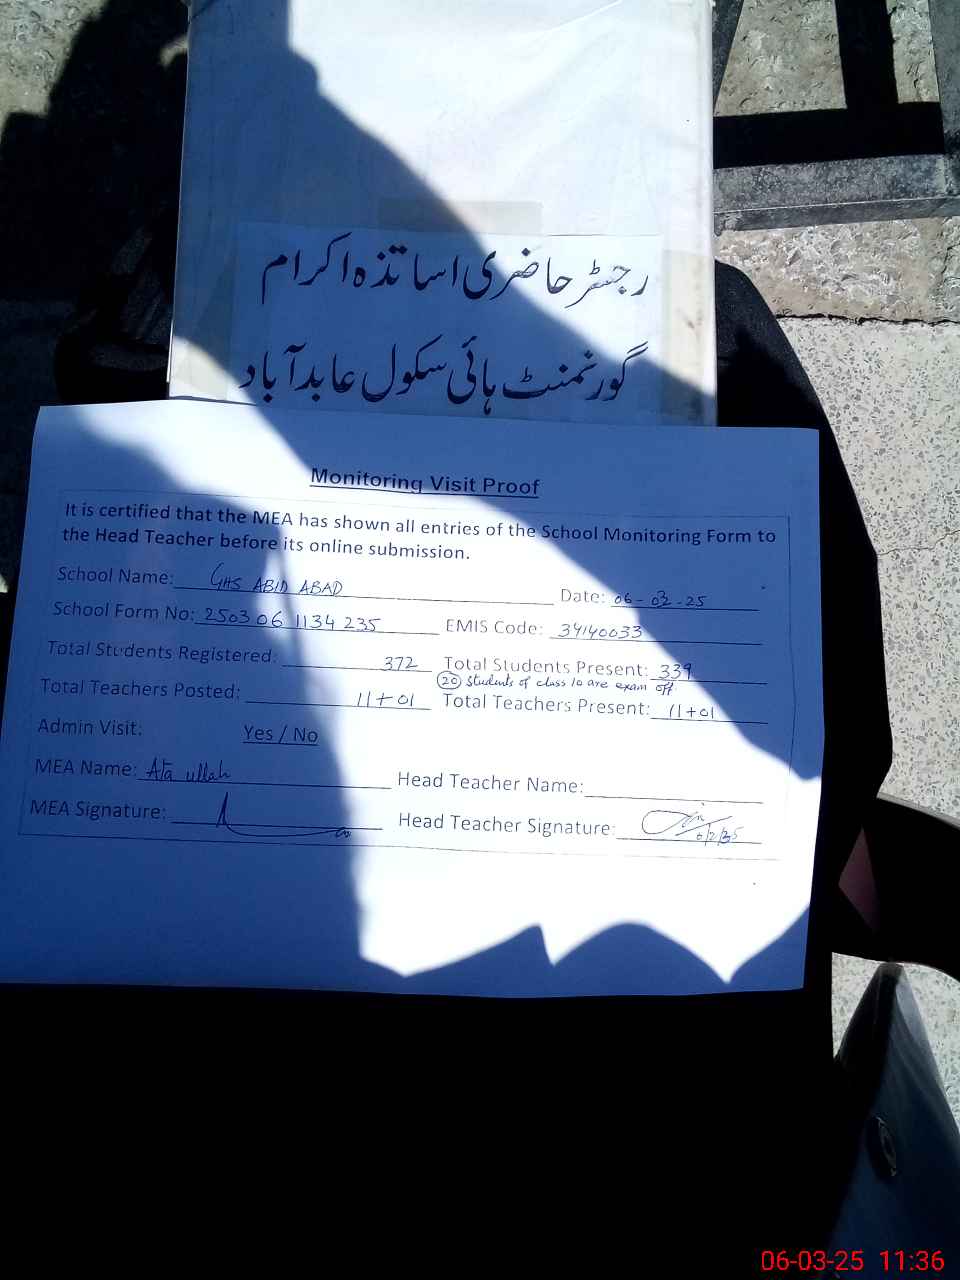 رجسٹر حاضری اساتذہ اکرام
گورنمنٹ ہائی سکول عابد آباد
Monitoring Visit Proof
It is certified that the MEA has shown all entries of the School Monitoring Form to
the Head Teacher before its online submission.
School Name: GHS ABID ABAD Date: 06-03-25
School Form No: 2503 06 1134 235 EMIS Code: 34140033
Total Students Registered: 372 Total Students Present: 339
(20) Students of class 10 are exam off.
Total Teachers Posted: 11+01 Total Teachers Present: 11+01
Admin Visit: Yes / No
MEA Name: Ata ullah Head Teacher Name:
MEA Signature: Head Teacher Signature:
06-03-25 11:36